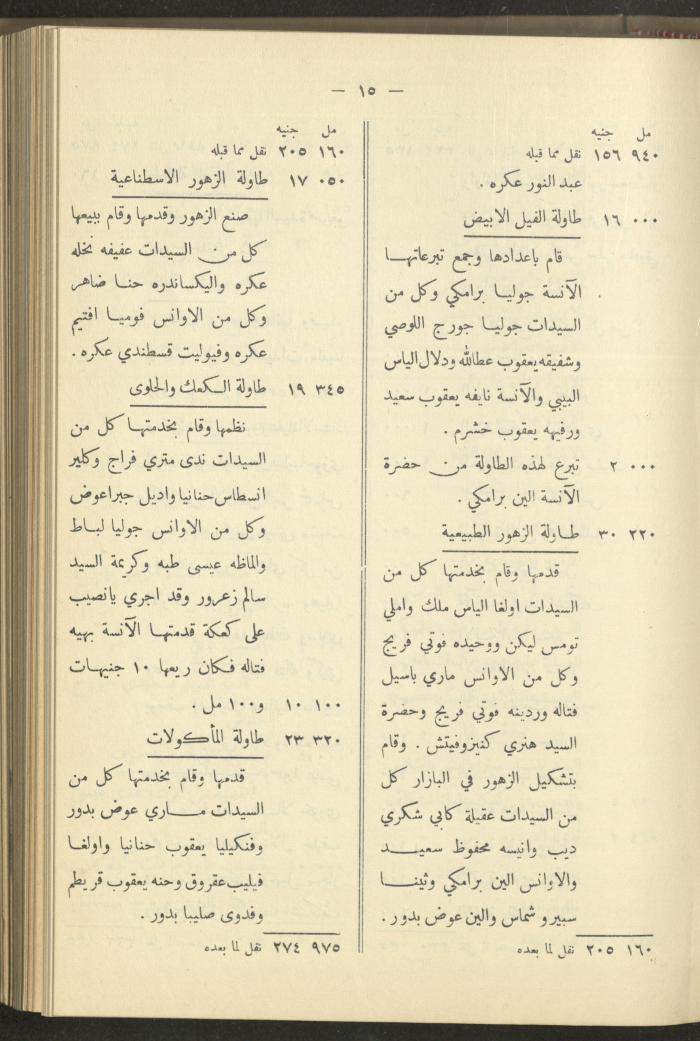 — ١٥ —
مل جنيه
٩٤٠ ١٥٦ نقل مما قبله
عبد النور عكره .
٠٠٠ ١٦ طاولة الفيل الابيض
قام باعدادها وجمع تبرعاتها
الآنسة جوليا برامكي وكل من
السيدات جوليا جورج اللوصي
وشفيقه يعقوب عطالله ودلال الياس
البيبي والآنسة نايفه يعقوب سعيد
ورفيهه يعقوب خشرم .
٠٠٠ ٢ تبرع لهذه الطاولة من حضرة
الآنسة الين برامكي .
٢٢٠ ٣٠ طاولة الزهور الطبيعية
قدمها وقام بخدمتها كل من
السيدات اولغا الياس ملك واملي
تومس ليكن ووحيده فوتي فريج
وكل من الاوانس ماري باسيل
فتاله وردينه فوتي فريج وحضرة
السيد هنري كنيزوفيتش . وقام
بتشكيل الزهور في البازار كل
من السيدات عقيلة كابي شكري
ديب وانيسه محفوظ سعيد
والاوانس الين برامكي وثينا
سبيرو شماس والين عوض بدور .
١٦٠ ٢٠٥ نقل لما بعده
مل جنيه
١٦٠ ٢٠٥ نقل مما قبله
٠٥٠ ١٧ طاولة الزهور الاسطناعية
صنع الزهور وقدمها وقام ببيعها
كل من السيدات عفيفه نخله
عكره واليكساندره حنا ضاهر
وكل من الاوانس فوميا افتيم
عكره وفيوليت قسطندي عكره .
٣٤٥ ١٩ طاولة الكعك والحلوى
نظمها وقام بخدمتها كل من
السيدات ندى متري فراج وكلير
انسطاس حنانيا واديل جبرا عوض
وكل من الاوانس جوليا لباط
والماظه عيسى طبه وكريمة السيد
سالم زعرور وقد اجري يانصيب
على كعكة قدمتها الآنسة بهيه
فتاله فكان ريعها ١٠ جنيهات
١٠٠ ١٠ و١٠٠ مل .
٣٢٠ ٢٣ طاولة المأكولات
قدمها وقام بخدمتها كل من
السيدات ماري عوض بدور
وفنكيليا يعقوب حنانيا واولغا
فيليب عقروق وحنه يعقوب قريطم
وفدوى صليبا بدور .
٩٧٥ ٢٧٤ نقل لما بعده